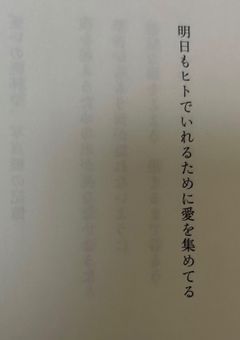 明日もヒトでいれるために愛を集めてる